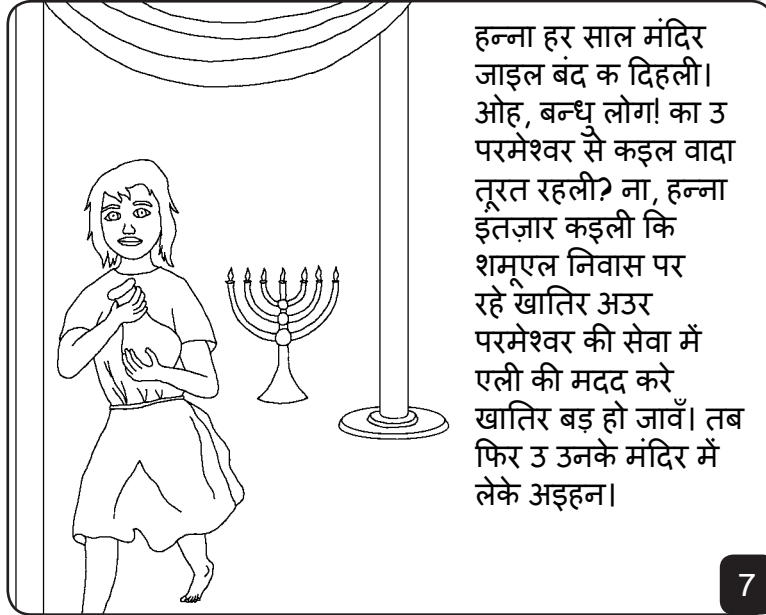 हन्ना हर साल मंदिर
जाइल बंद क दिहली।
ओह, बन्धु लोग! का उ
परमेश्वर से कइल वादा
तूरत रहली? ना, हन्ना
इंतज़ार कइली कि
शमूएल निवास पर
रहे खातिर अउर
परमेश्वर की सेवा में
एली की मदद करे
खातिर बड़ हो जावँ। तब
फिर उ उनके मंदिर में
लेके अइहन।
7